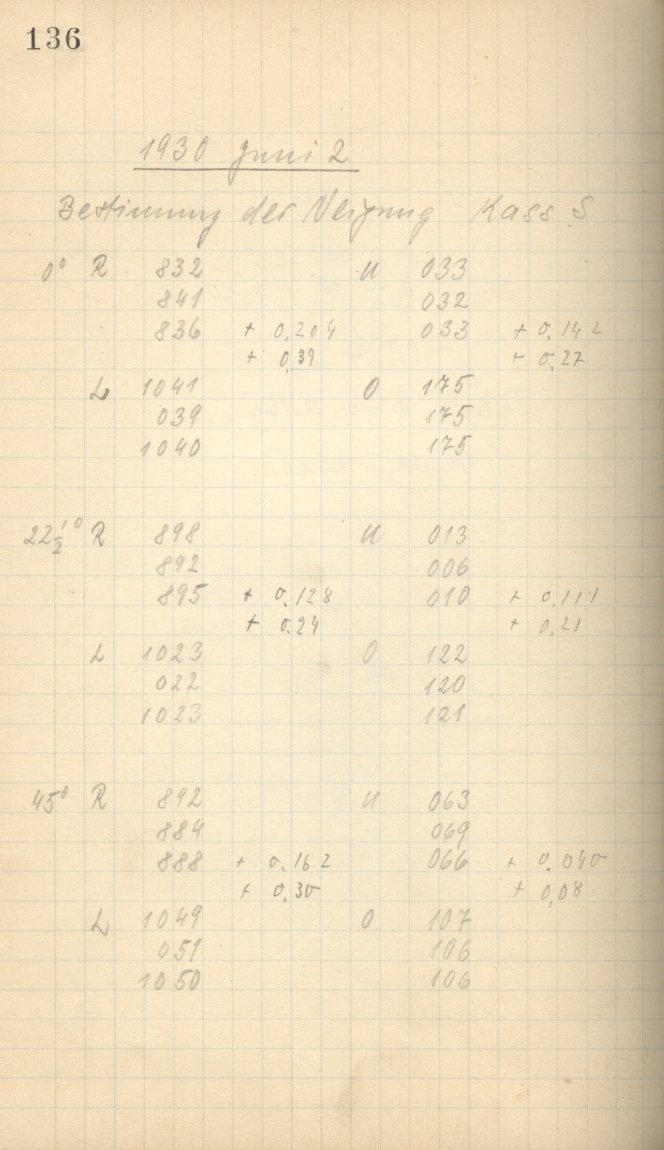 136
1930 Juni 2
Bestimmung der Neigung Kass. S
0° R 832 U 033
841 032
836 + 0,204 033 + 0,142
+ 0,39 + 0,27
L 1041 O 175
039 175
1040 175
22½° R 898 U 013
892 006
895 + 0,128 010 + 0,111
+ 0,24 + 0,21
L 1023 O 122
022 120
1023 121
45° R 892 U 063
884 069
888 + 0,162 066 + 0,040
+ 0,30 + 0,08
L 1049 O 107
051 106
1050 106